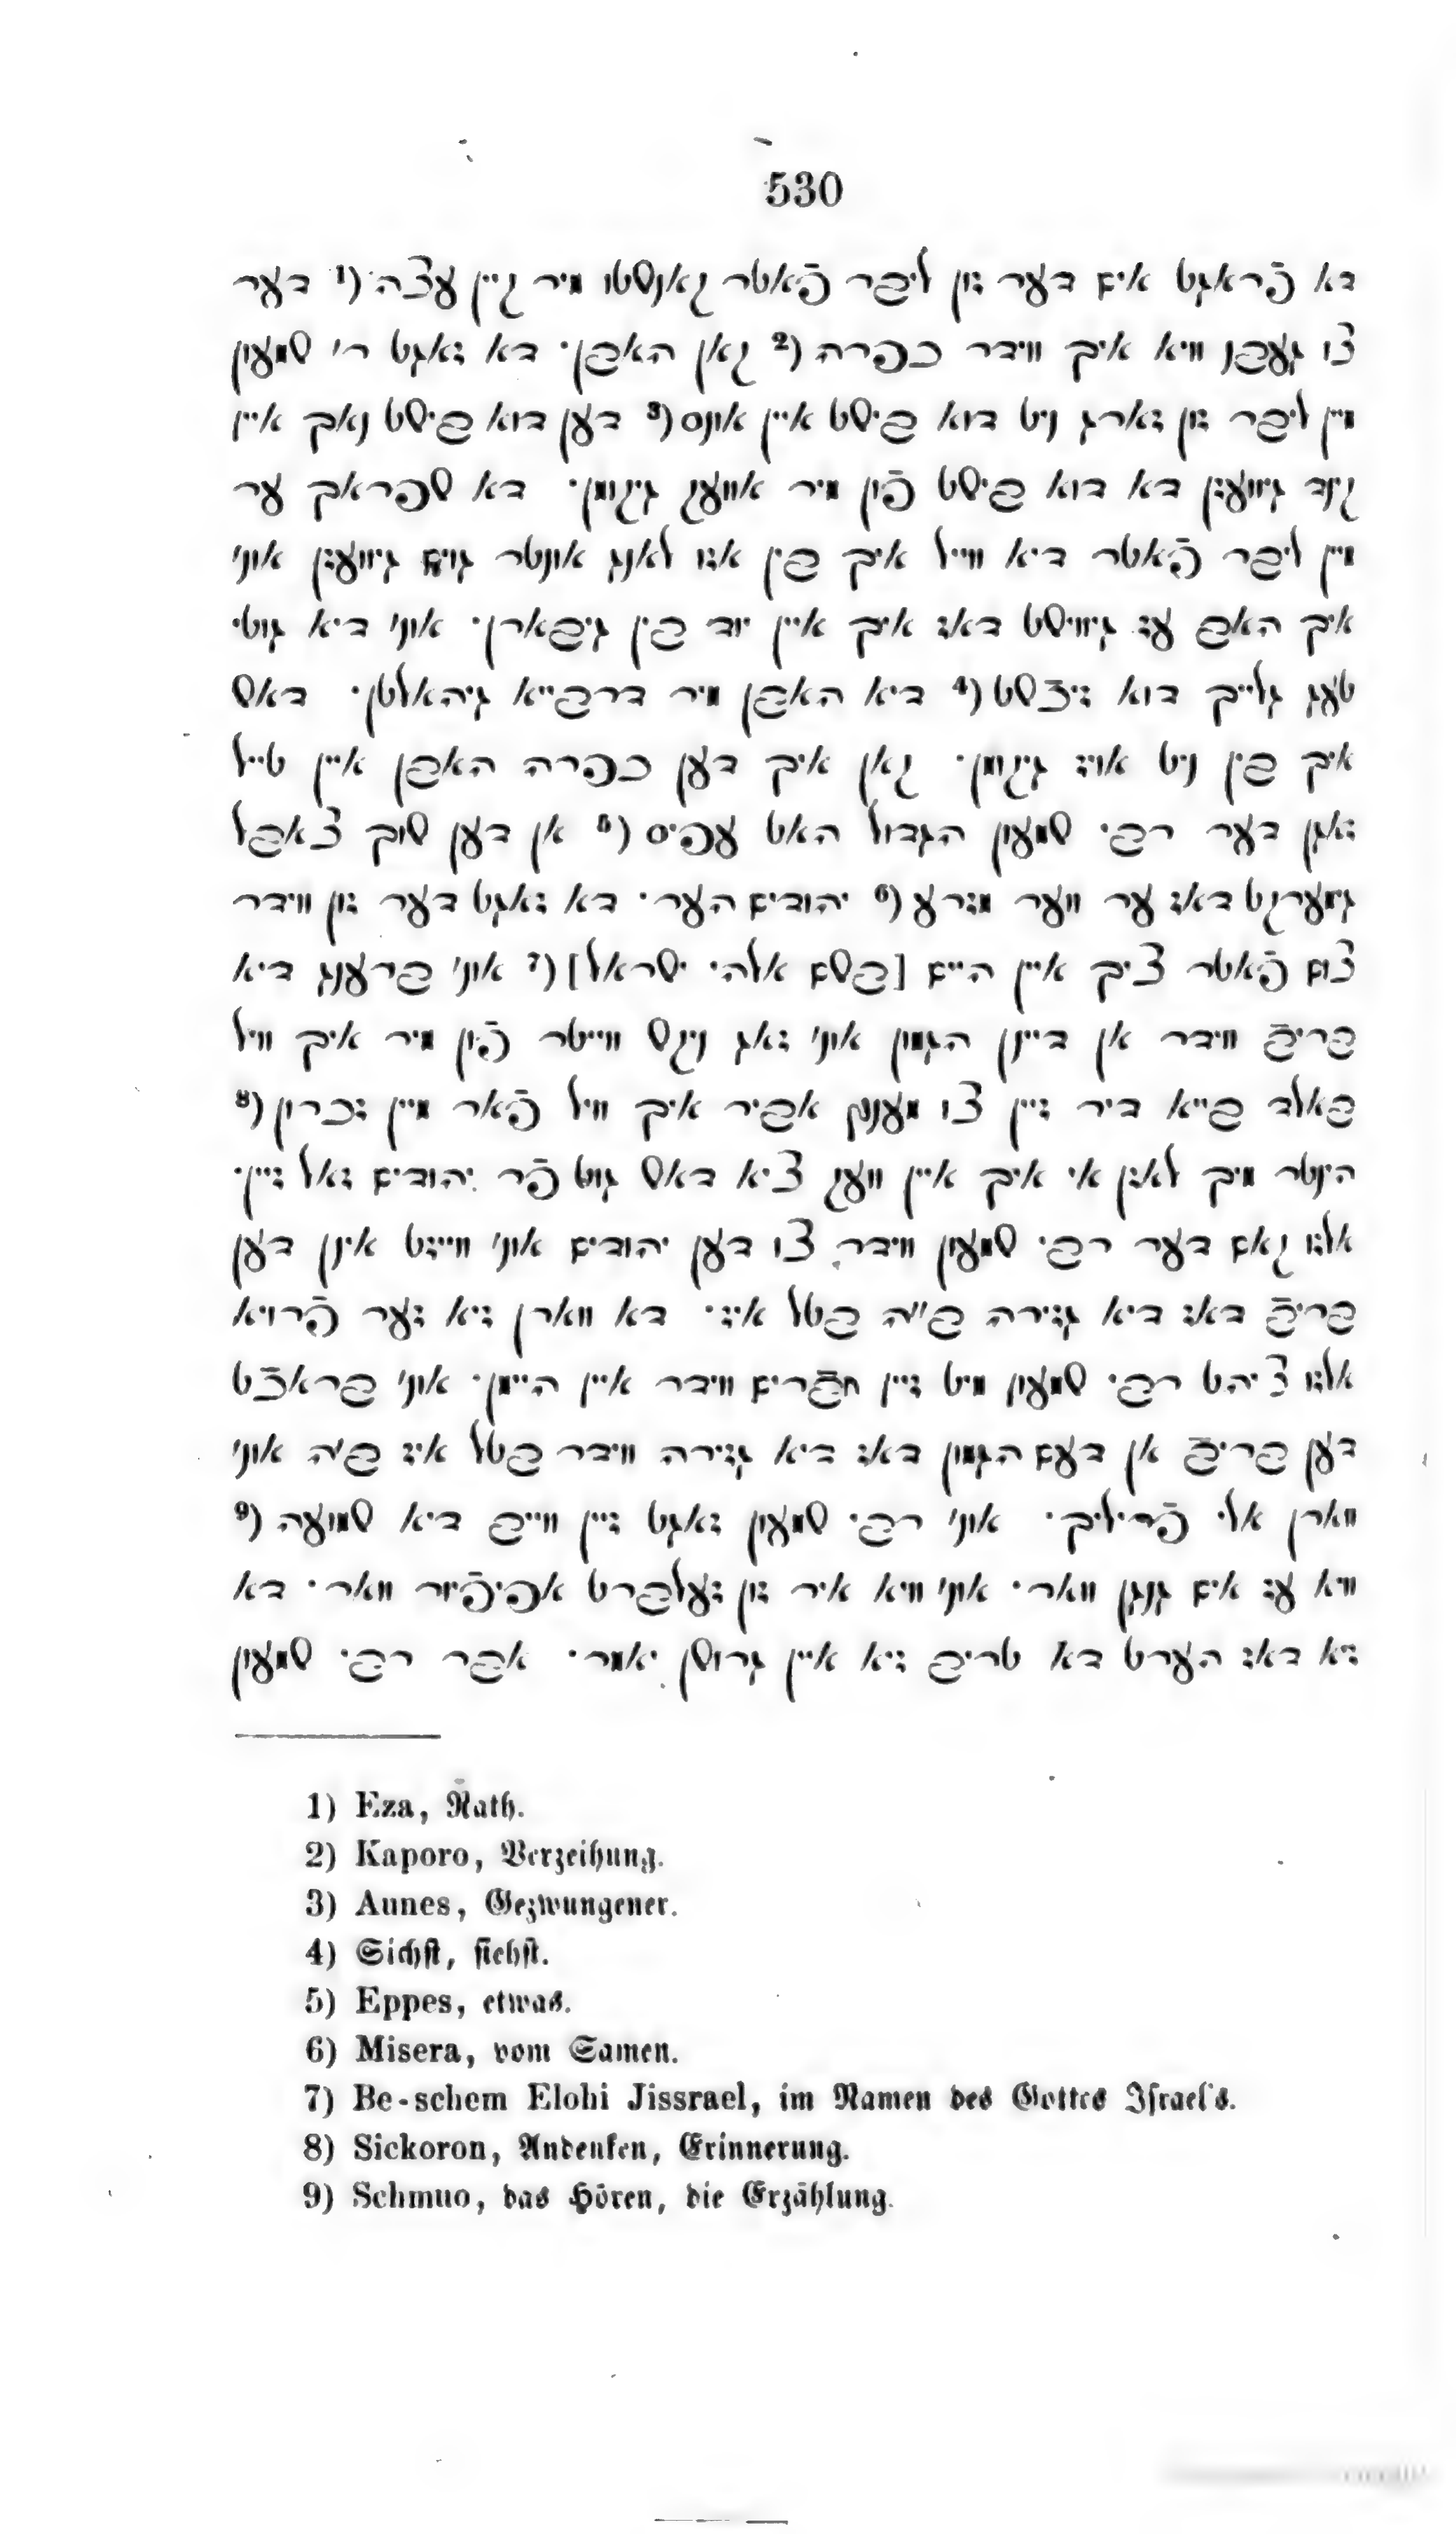 530
דא פֿראגט אים דער זון ליבר פֿאטר קאנשטו מיר קיין עצה (1 דער
צו געבן וויא איך ווידר כפרה (2 קאן האבן· דא זאגט ר׳ שמעון
מיין ליבר זון זארג ניט דוא בישט איין אונס (3 דען דוא בישט נאך איין
קינד גיוועזן דא דוא בישט פֿון מיר אוועק גיקומן· דא שפראך ער
מיין ליבר פֿאטר דיא ווייל איך בין אזו לאנג אונטר גוים גיוועזן אונ׳
איך האב עז גיווישט דאז איך איין יוד בין גיבארן· אונ׳ דיא גוטי
טעג גלייך דוא זיצֿשט (4 דיא האבן מיר דרבייא גיהאלטן· דאש
איך בין ניט אויז גיקומן· קאן איך דען כפרה האבן איין טייל
זאגן דער רבי שמעון הגדול האט עפיס (5 אן דען שוך צאבל
גמערקט דאז ער ווער מזרע (6 יהודים הער· דא זאגט דער זון ווידר
צום פֿאטר ציך איין היים [בשם אלהי ישראל] (7 אונ׳ ברענג דיא
בריבֿ ווידר אן דיינן הגמון אונ׳ זאג ניקש ווייטר פֿון מיר איך וויל
באלד בייא דיר זיין צו מענץ אביר איך וויל פֿאר מיין זכרון (8
הינטר מיך לאזן אי איך איין וועג ציא דאש גוט פֿר יהודים זאל זיין·
אלזו קאם דער רבי שמעון ווידר צו דען יהודים אונ׳ ווייזט אינן דען
בריבֿ דאז דיא גזירה ב״ה בטל איז· דא ווארן זיא זער פֿרויא
אלזו ציהט רבי שמעון מיט זיין חבֿרים ווידר איין היימן· אונ׳ בראכֿט
דען בריבֿ אן דעם הגמון דאז דיא גזירה ווידר בטל איז ב״ה אונ׳
ווארן אלי פֿריליך· אונ׳ רבי שמעון זאגט זיין ווייב דיא שמועה (9
וויא עז אים גנגן וואר· אונ׳ וויא איר זון זעלברט אפיפֿיור וואר· דא
זיא דאז הערט דא טריב זיא איין גרושן יאמר· אבר רבי שמעון
1) Eza, Rath.
2) Kaporo, Verzeihung.
3) Aunes, Gezwungener.
4) Sichst, siehst.
5) Eppes, etwas.
6) Misera, vom Samen.
7) Be-schem Elohi Jissrael, im Namen des Gottes Israel's.
8) Sickoron, Andenken, Erinnerung.
9) Schmuo, das Hören, die Erzählung.